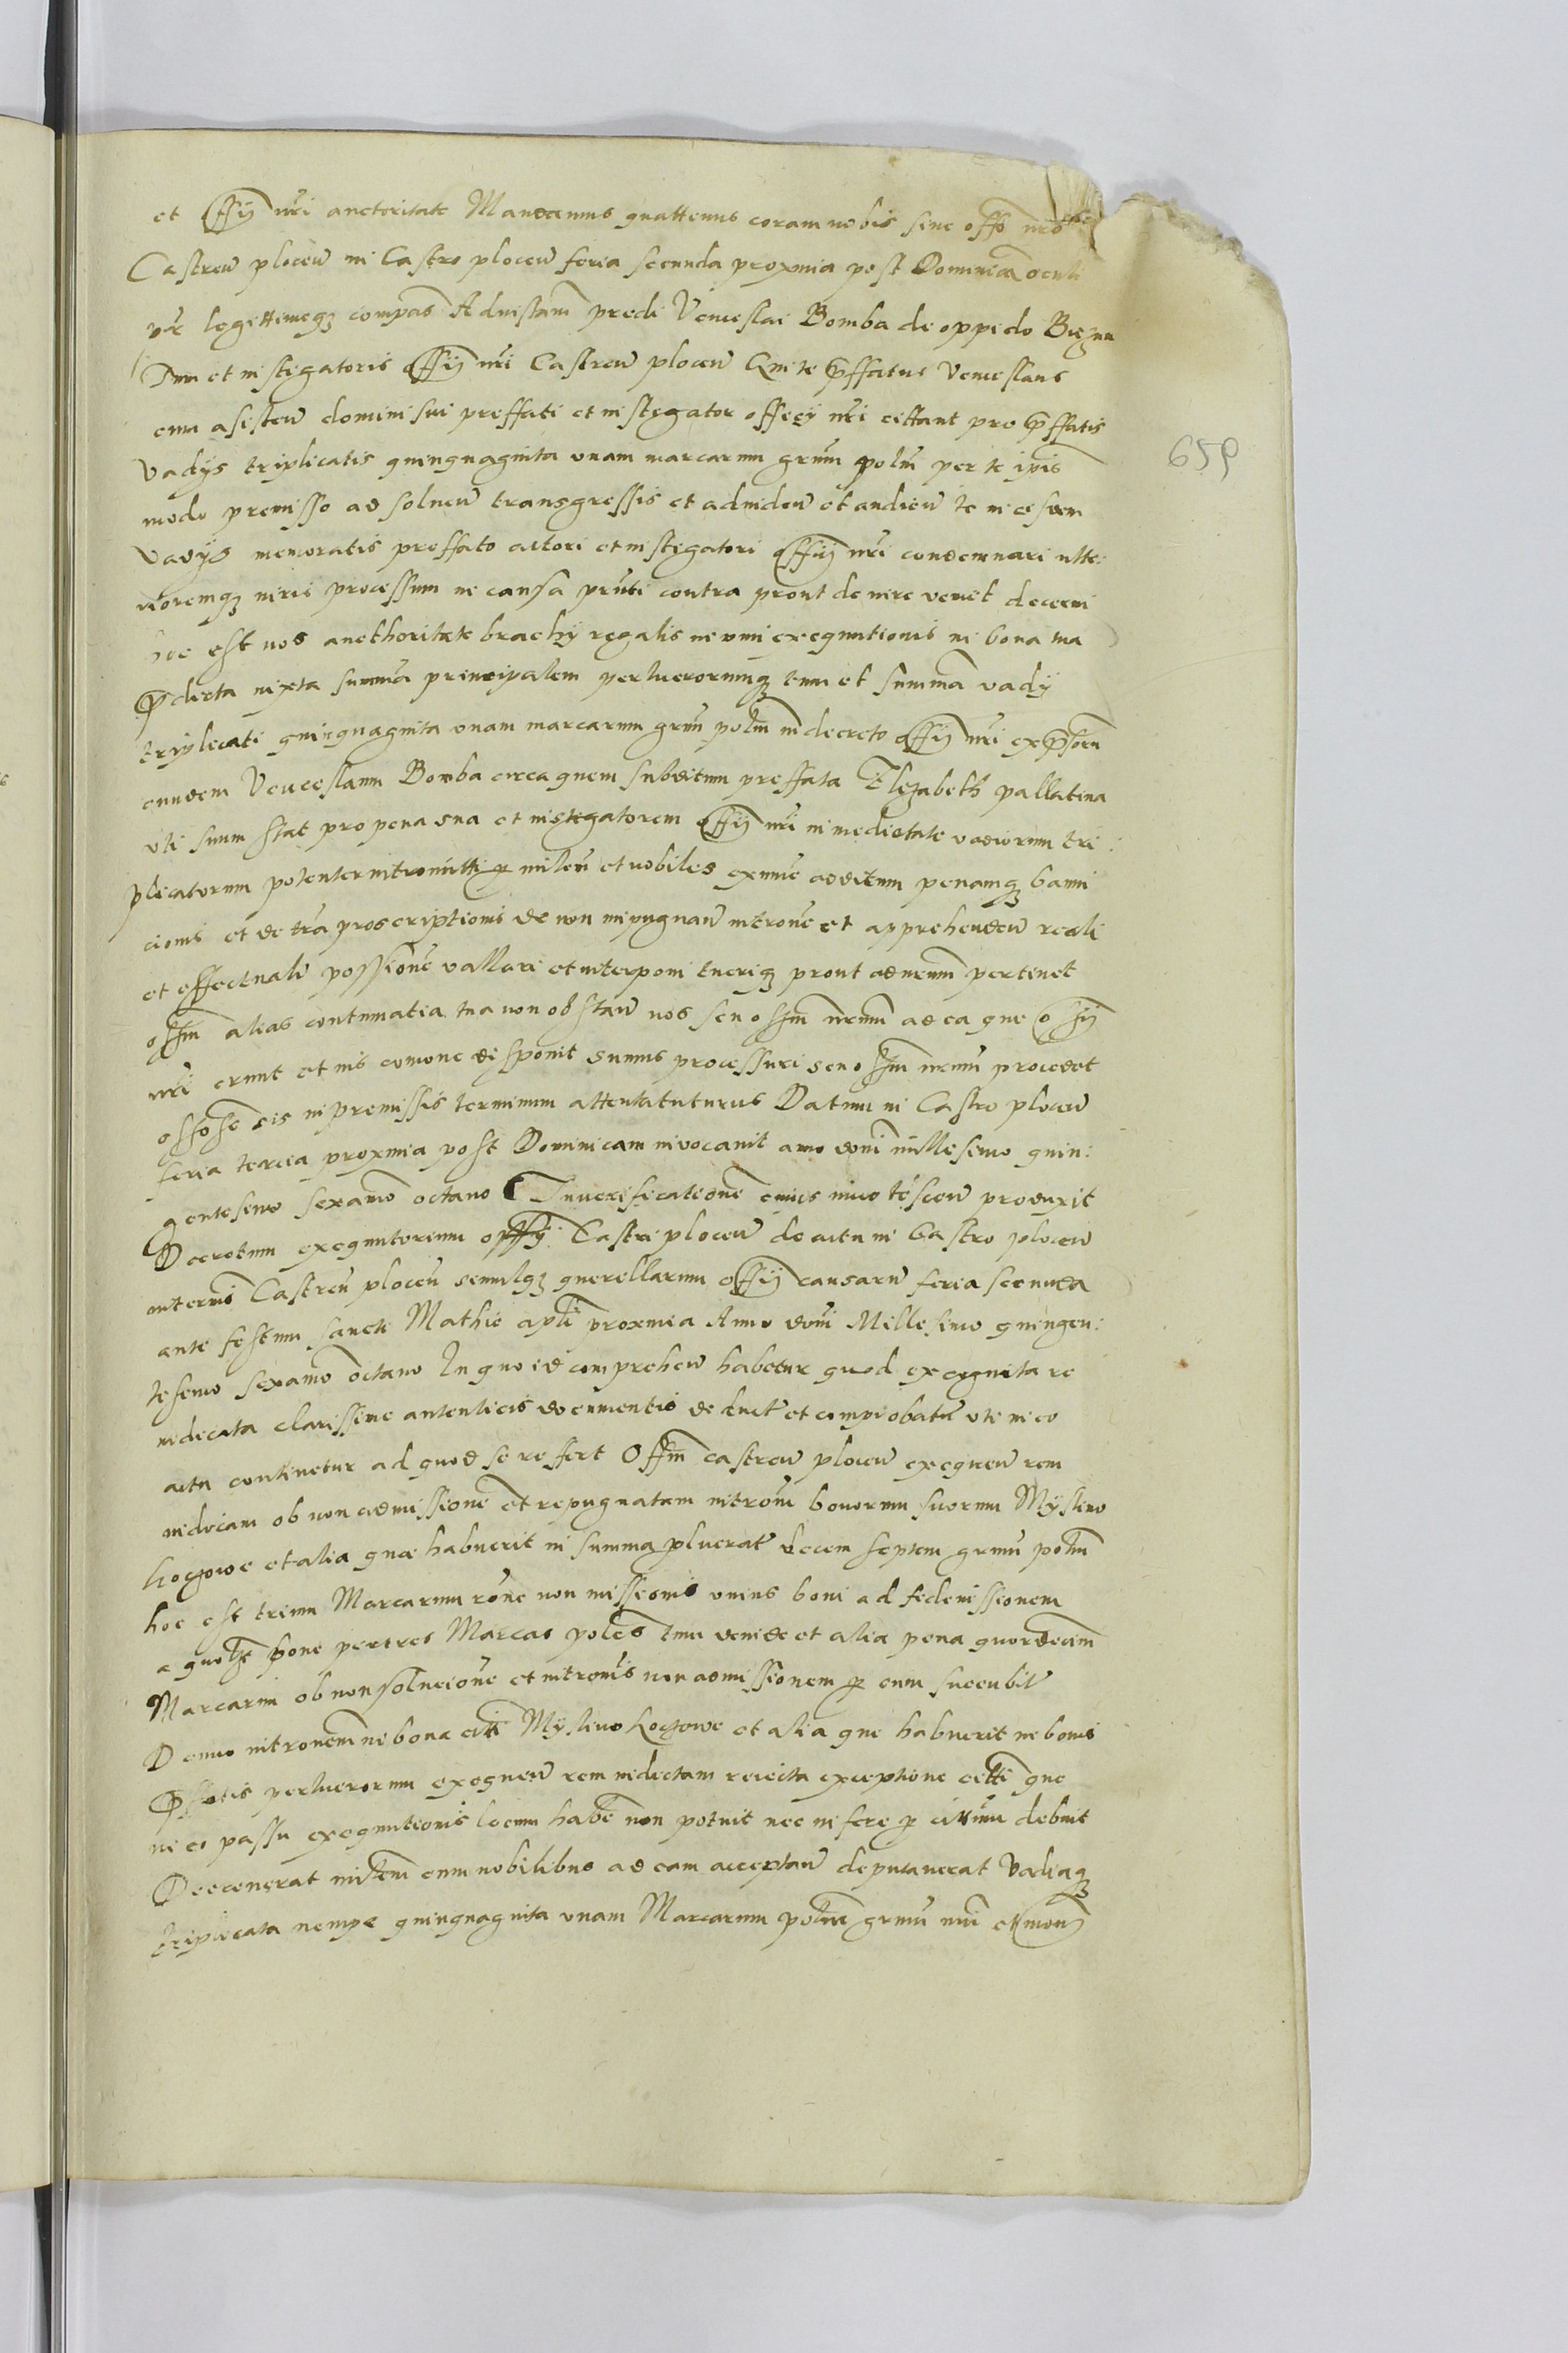 et Offij nri auctoritate Mandamus quattenus coram nobis sive offo nro
Castren plocen in Castro plocen feria secunda proxima post Dominicā oculi
pr legittimeqz compas Ad instam predi Venceslai Bomba de oppido Biezun
Dnn et instigatoris Offij nri Castren plocen Qui te pffatus Venceslaus
cum asisten domini sui preffati et instigator officij nri cittant pro pffatis
Vadijs triplicatis quinquaginta unam marcarum grum polm per te ipis
modo premisso ad solven transgressis et ad viden et audien te in eisdem
Vadijs memoratis preffato actori et instigatori Offij nri condemnari ulte:
rioremqz iuris processum in causa pnti contra prout de iure venit decerni
hoc est nos aucthoritate brachij regalis in vim exequutionis in bona tua
pdicta iuxta summā principalem perlucrorumqz tum et summā vadij
triplicati quinquaginta unam marcarum grum polm in decreto Offij nri expssorn
eundem Venceslaum Bomba circa quem subditum preffata Elizabeth pallatina
uti suum stat pro pena sua et instigatorem Offij nri in medietate vadiorum tri:
plicatorum potenter intromitti p milem et nobiles exnunc additum penamqz banni
cionis et de tra proscriptionis de non inpugnan introne et apprehenden reali
et effectuali possione vallari et interponi tueriqz prout ad nrum pertinet
offm alias contumatia tua non obstan nos seu offm nrum ad ea que Offij
nri erunt et ius comune disponit sumus processuri seu offm nrum procedet
offose sis in premissis terminum attentaturus Datum in Castro plocen
feria tercia proxima post Dominicam invocavit anno dom millesimo quin:
gentesimo sexamo octavo In verificatione cuius mīro tescen produxit
Decretum exequutorium offij Castri plocen de actu in Castro plocen
interms Castren plocen simulqz querellarum Offij causaru feria secunda
ante festum sancti Mathie apli proxima Anno dom Millesimo quingen:
tesimo sexamo octavo In quo id comprehen habetur quod exequuta re
iudicata clarissime autenticis documentis deduct et comprobatu ute in eo
actu continetur ad quod se refert Offm castren plocen exequen rem
iudicam ob non admissione et repugnatam introm bonorum suorum Myslino
Rogowe et alia quae habuerit in summa plucrat decem septem grum polm
hoc est trium Marcarum rone non missionis unius boni ad fideiussionem
a quolzt pone per tres Marcas poles tum denide et alia pena quordecim
Marcarum ob non solucione et introms non admissionem p eum succubit
Denuo intronem in bona citti Myslino Rogowe et alia que habuerit in bonis
pffatis perlucrorum exequen rem iudictam reiecta exceptione citti que
in eo passu exequutionis locum habe non potuit nec infere p cittum debuit
Decenerat milem cum nobilibus ad eam acceptan deputaverat Vadiaqz
triplicata nempe quinquaginta unam Marcarum polm grum nui et mon
659